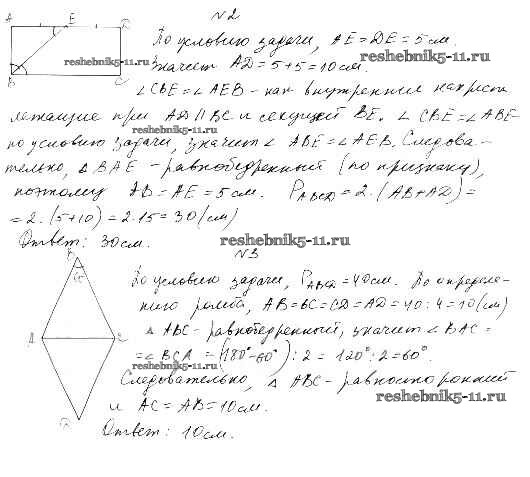 №2
A E D
По условию задачи, AE = DE = 5 см.
reshebnik5-11.ru
reshebnik5-11.ru
Значит AD = 5+5 = 10 см.
B C
∠CBE = ∠AEB - как внутренние накрест
лежащие при AD || BC и секущей BE. ∠CBE = ∠ABE
reshebnik5-11.ru
по условию задачи, значит ∠ABE = ∠AEB. Следова-
тельно, △BAE - равнобедренный (по признаку),
reshebnik5-11.ru
поэтому AB = AE = 5 см. P ABCD = 2·(AB+AD) =
= 2·(5+10) = 2·15 = 30 (см)
Ответ: 30 см.
reshebnik5-11.ru
№3
B
60°
По условию задачи, P ABCD = 40 см. По определе-
нию ромба, AB = BC = CD = AD = 40 : 4 = 10 (см)
A C
△ABC - равнобедренный, значит ∠BAC =
= ∠BCA = (180° - 60°) : 2 = 120° : 2 = 60°.
reshebnik5-11.ru
Следовательно, △ABC - равносторонний
и AC = AB = 10 см.
reshebnik5-11.ru
D
Ответ: 10 см.